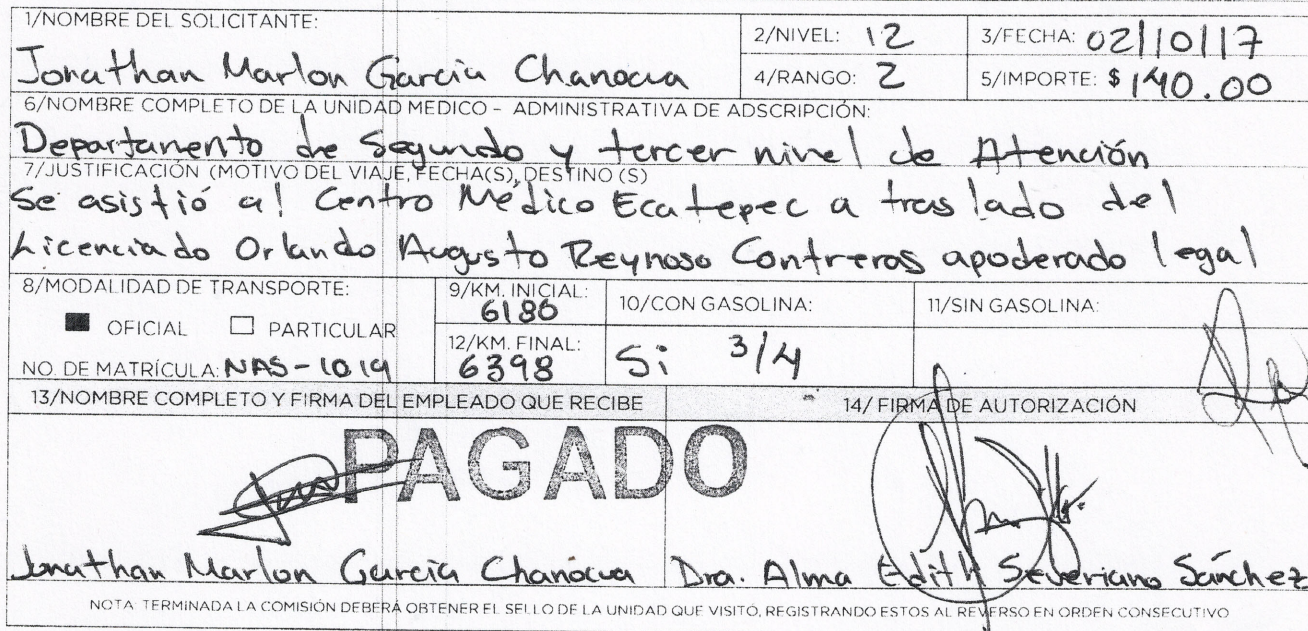 1/NOMBRE DEL SOLICITANTE:
Jonathan Marlon García Chanocua
2/NIVEL: 12
3/FECHA: 02/10/17
4/RANGO: 2
5/IMPORTE: $ 140.00
6/NOMBRE COMPLETO DE LA UNIDAD MEDICO - ADMINISTRATIVA DE ADSCRIPCIÓN:
Departamento de Segundo y tercer nivel de Atención
7/JUSTIFICACIÓN (MOTIVO DEL VIAJE, FECHA(S), DESTINO (S)
Se asistió al Centro Médico Ecatepec a traslado del
Licenciado Orlando Augusto Reynoso Contreras apoderado legal
8/MODALIDAD DE TRANSPORTE:
OFICIAL PARTICULAR
NO. DE MATRÍCULA: NAS-1019
9/KM. INICIAL:
6186
12/KM. FINAL:
6398
10/CON GASOLINA:
Si 3/4
11/SIN GASOLINA:
13/NOMBRE COMPLETO Y FIRMA DEL EMPLEADO QUE RECIBE
14/ FIRMA DE AUTORIZACIÓN
PAGADO
Jonathan Marlon García Chanocua
Dra. Alma Edith Severiano Sánchez
NOTA: TERMINADA LA COMISIÓN DEBERÁ OBTENER EL SELLO DE LA UNIDAD QUE VISITÓ, REGISTRANDO ESTOS AL REVERSO EN ORDEN CONSECUTIVO